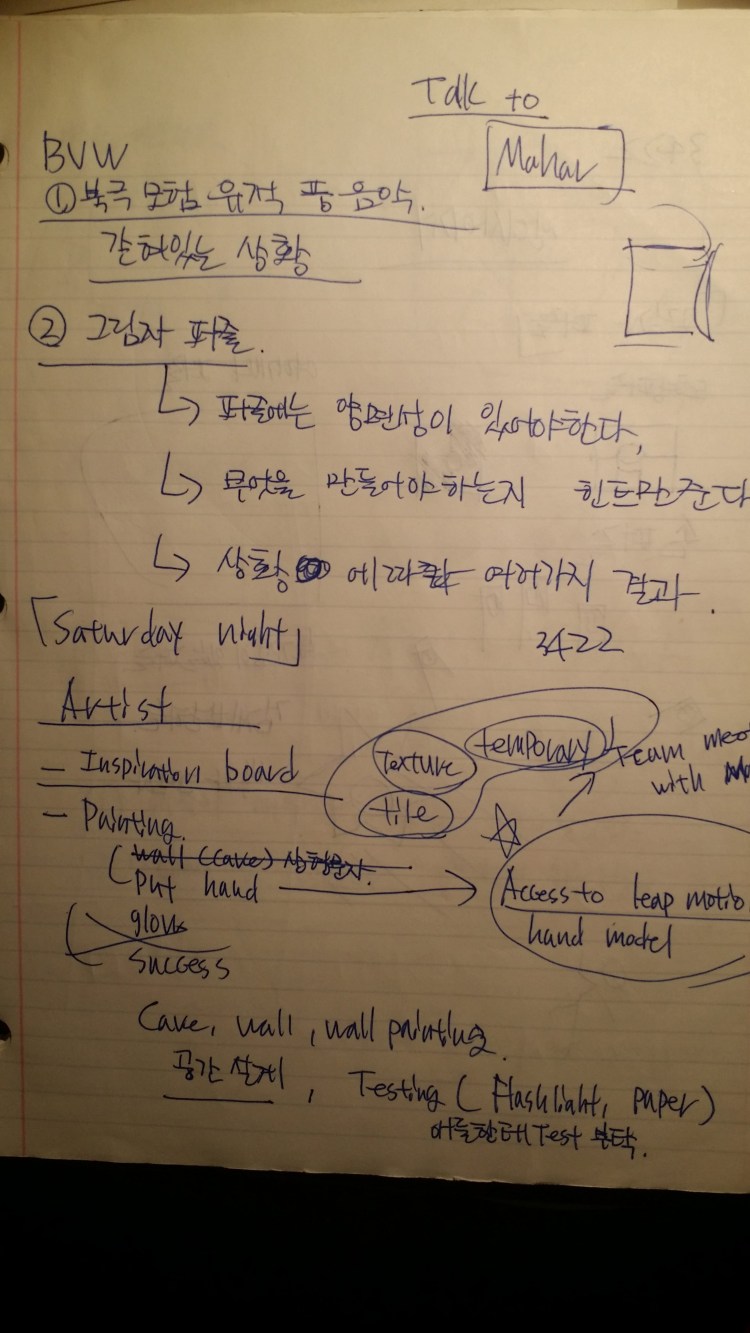 Talk to
Mahar
BVW
① 북극 모험 유적 풍 음악.
갇혀있는 상황
② 그림자 퍼즐.
↳ 퍼즐에는 양면성이 있어야한다.
↳ 무엇을 만들어야하는지 힌트만준다
↳ 상황에따라 여러가지 결과.
「Saturday night」
3422
Artist
- Inspiration board
texture
temporary
tile
Team meet
with
- Painting.
wall (cave) 상형문자.
Put hand
Access to leap motio
hand model
glove
success
Cave, wall, wall painting.
공간 설계, Testing (Flashlight, paper)
애들한테 Test 부탁.